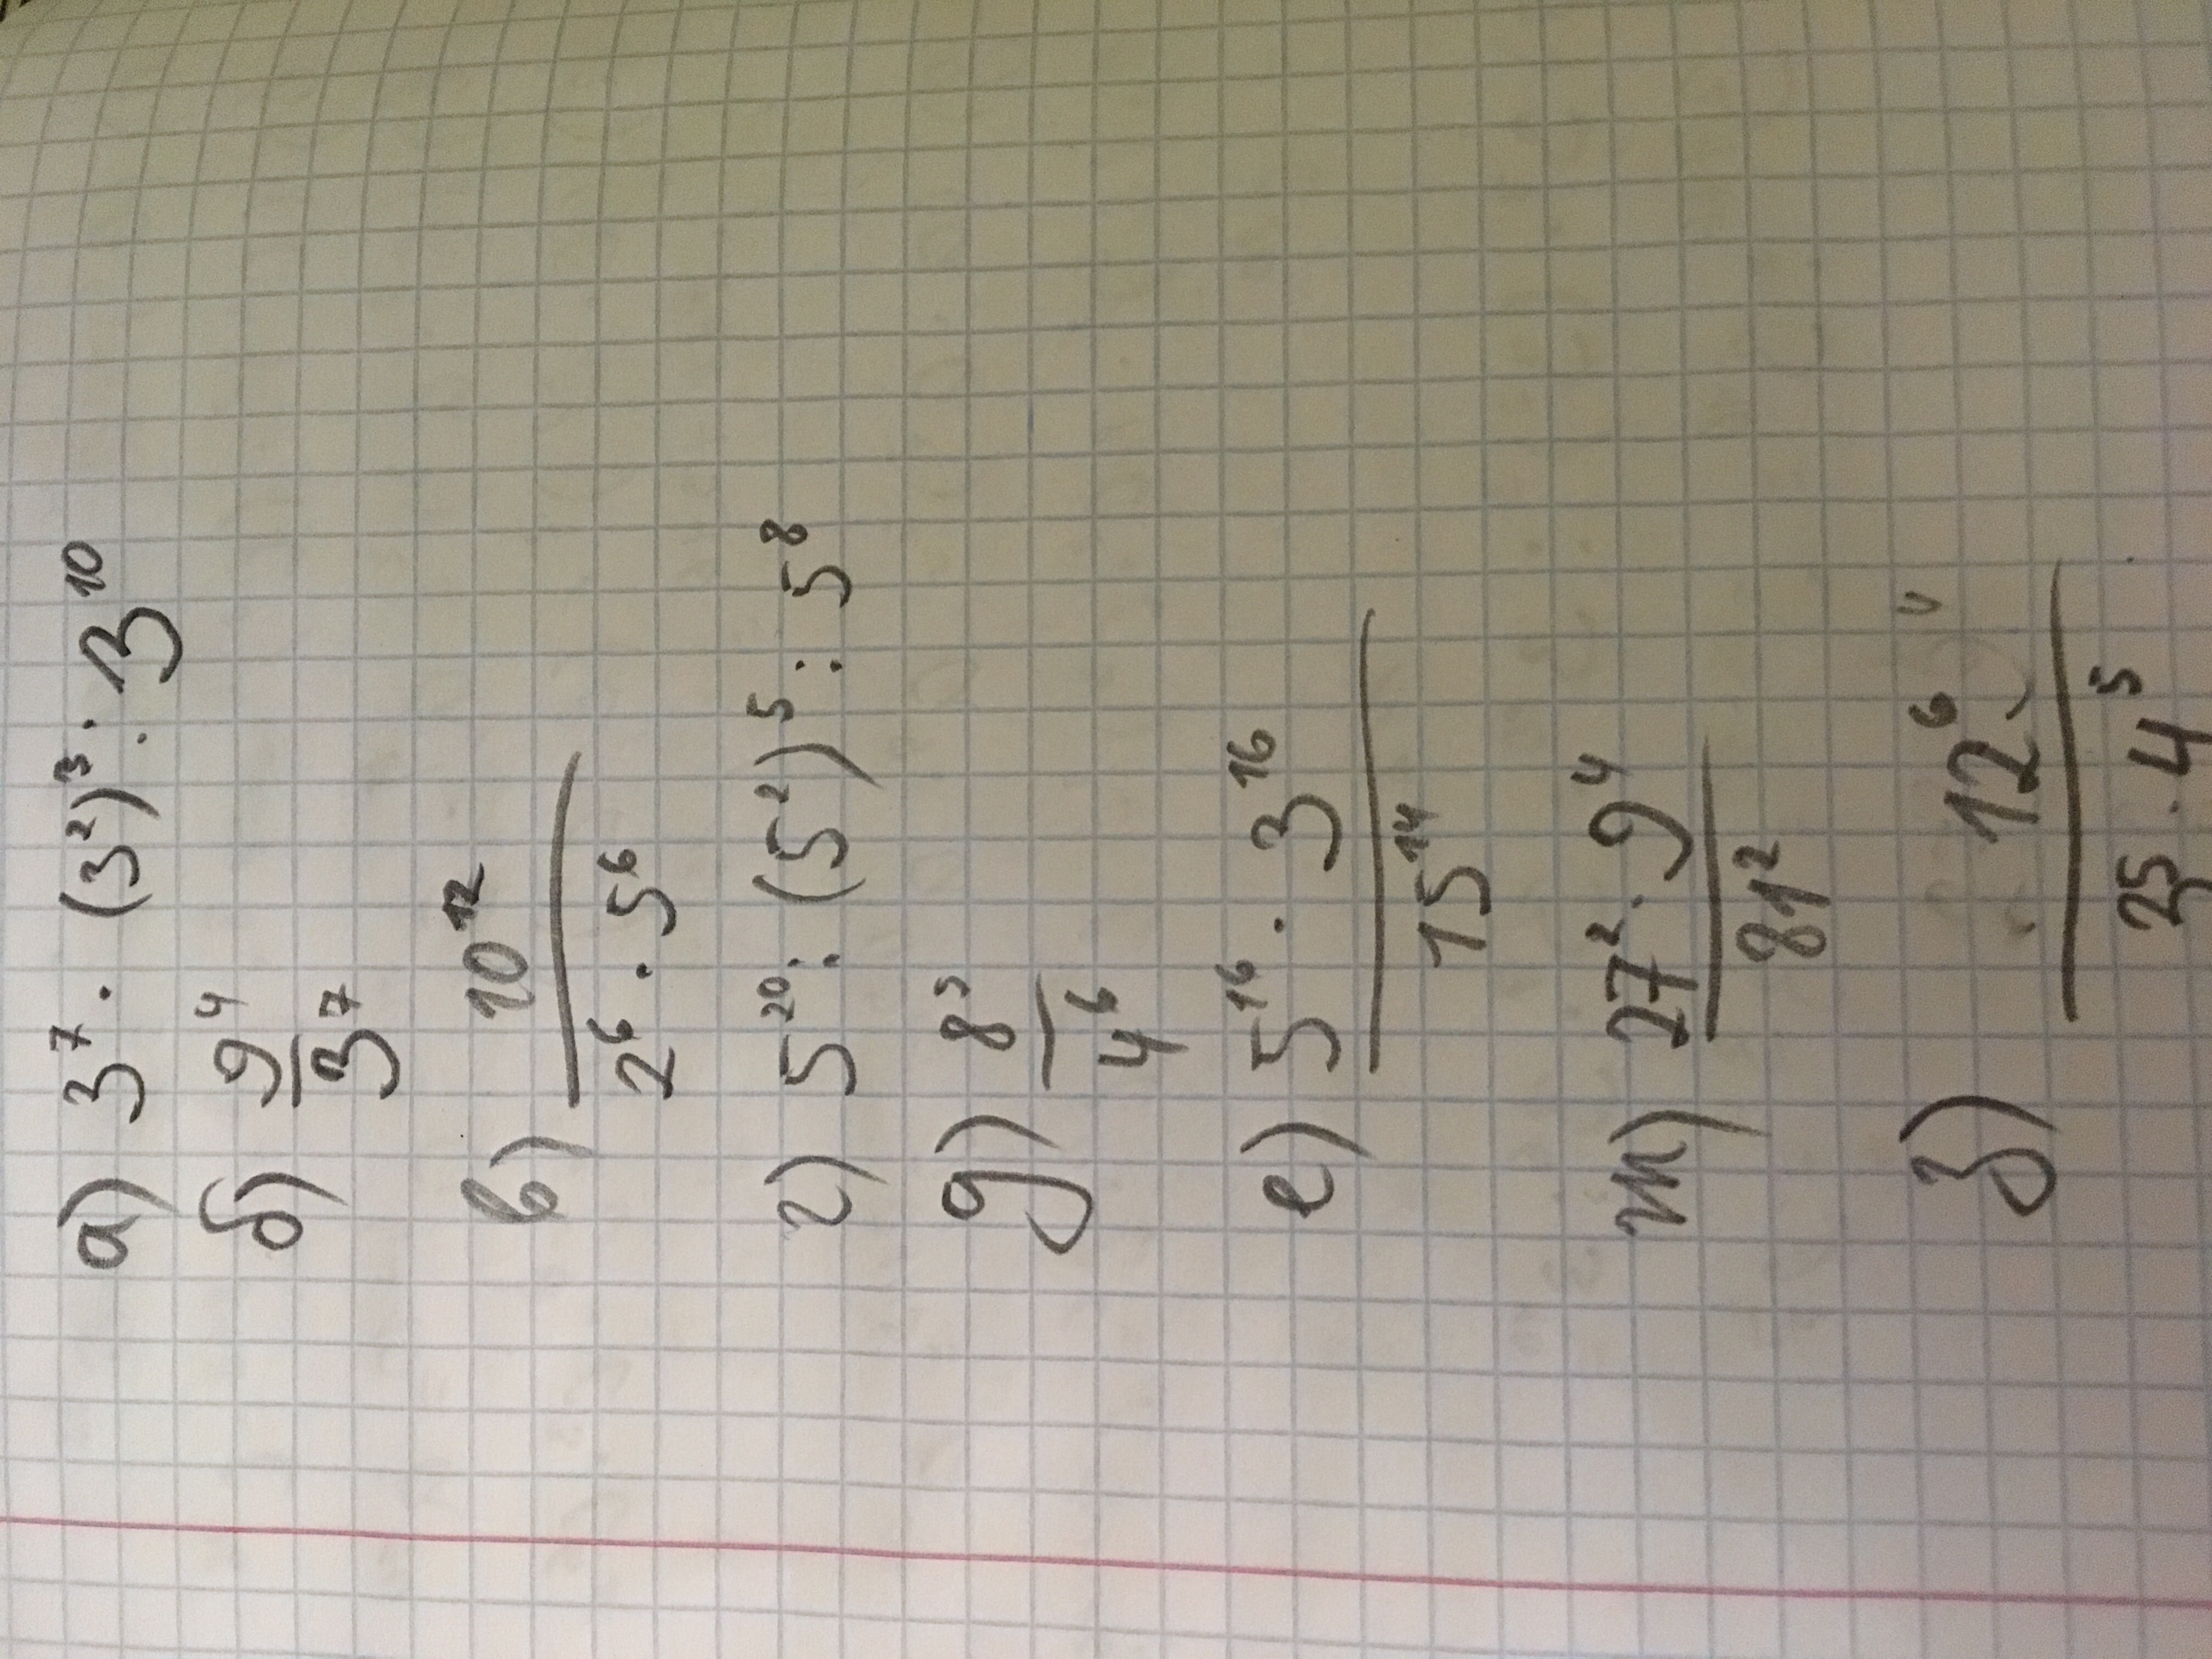 а) 3⁷ · (3²)³ : 3¹⁰
б) 9⁴
3⁷
в) 10¹²
2⁶ · 5⁶
г) 5²⁰ : (5²)⁵ : 5⁸
д) 8⁵
4⁶
е) 5¹⁶ · 3¹⁶
15¹⁴
ж) 27² · 9⁴
81²
з) 12⁶
25 · 4⁵